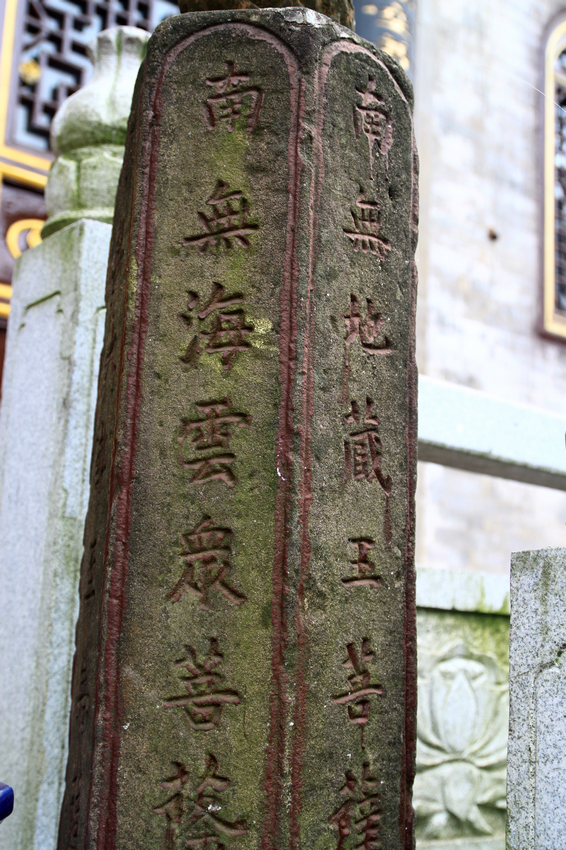 南無地藏王菩薩
南無海雲眾菩薩